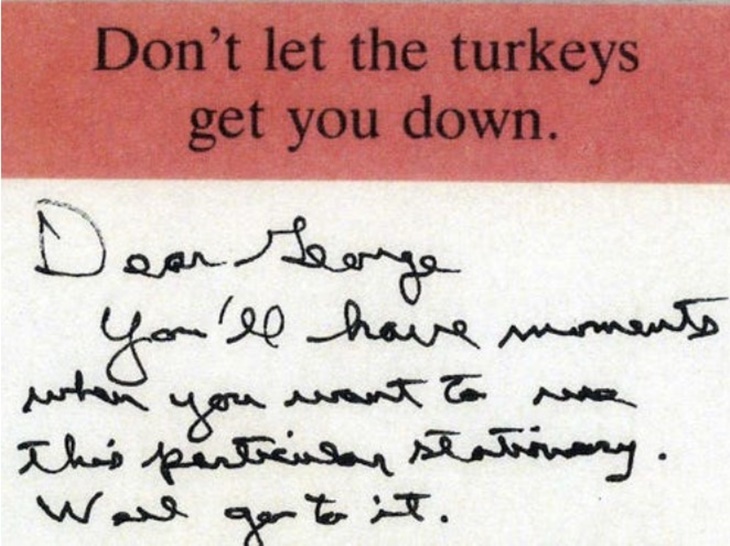 Don't let the turkeys
get you down.
Dear George
You'll have moments
when you want to use
this particular stationary.
Well go to it.